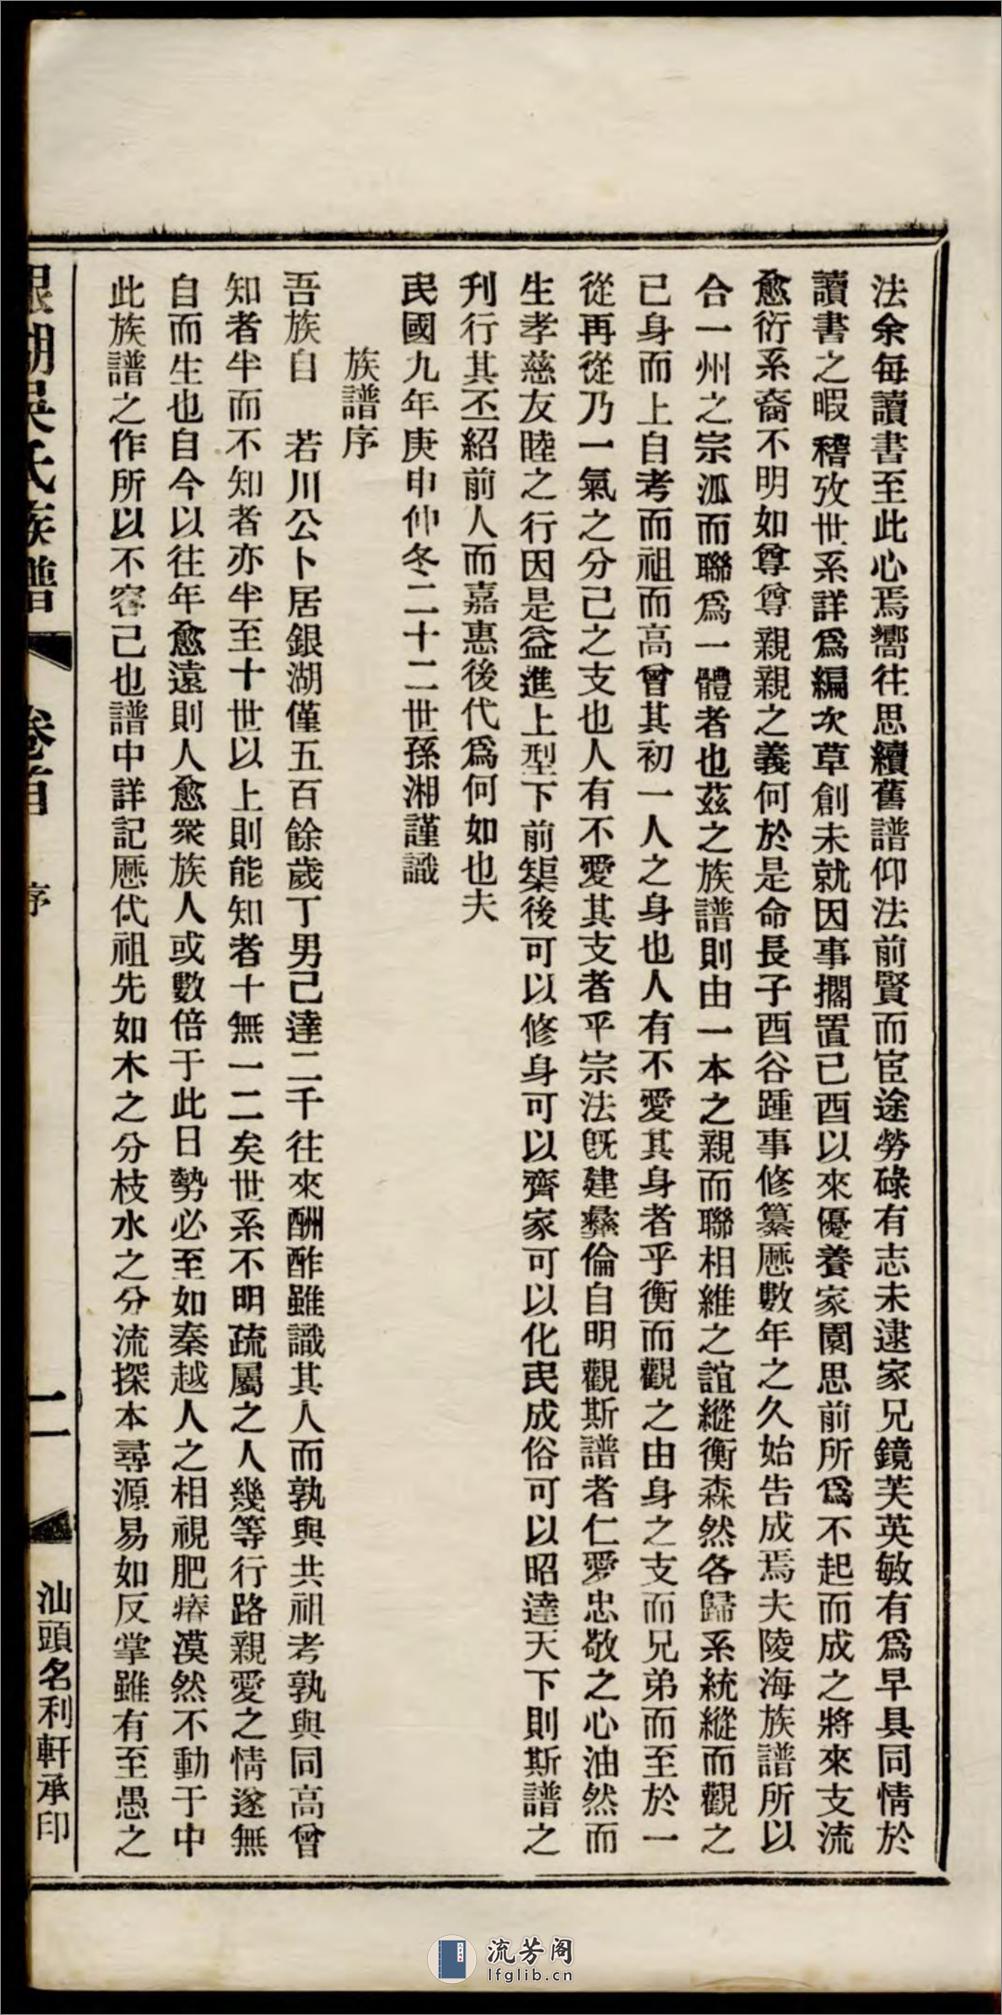 法余每讀書至此心焉嚮往思續舊譜仰法前賢而宦途勞碌有志未逮家兄鏡芙英敏有爲早具同情於
讀書之暇稽攷世系詳爲編次草創未就因事擱置己酉以來優養家園思前所爲不起而成之將來支流
愈衍系裔不明如尊尊親親之義何於是命長子酉谷踵事修纂歷數年之久始告成焉夫陵海族譜所以
合一州之宗派而聯爲一體者也茲之族譜則由一本之親而聯相維之誼縱衡森然各歸系統縱而觀之
己身而上自考而祖而高曾其初一人之身也人有不愛其身者乎衡而觀之由身之支而兄弟而至於一
從再從乃一氣之分己之支也人有不愛其支者乎宗法旣建彝倫自明觀斯譜者仁愛忠敬之心油然而
生孝慈友睦之行因是益進上型下前榘後可以修身可以齊家可以化民成俗可以昭達天下則斯譜之
刊行其丕紹前人而嘉惠後代爲何如也夫
民國九年庚申仲冬二十二世孫湘謹識
族譜序
吾族自 若川公卜居銀湖僅五百餘歲丁男己達二千往來酬酢雖識其人而孰與共祖考孰與同高曾
知者半而不知者亦半至十世以上則能知者十無一二矣世系不明疏屬之人幾等行路親愛之情遂無
自而生也自今以往年愈遠則人愈衆族人或數倍于此日勢必至如秦越人之相視肥瘠漠然不動于中
此族譜之作所以不容己也譜中詳記歷代祖先如木之分枝水之分流探本尋源易如反掌雖有至愚之
銀湖吳氏族譜 卷首 序 二 汕頭名利軒承印
流芳阁
lfglib.cn